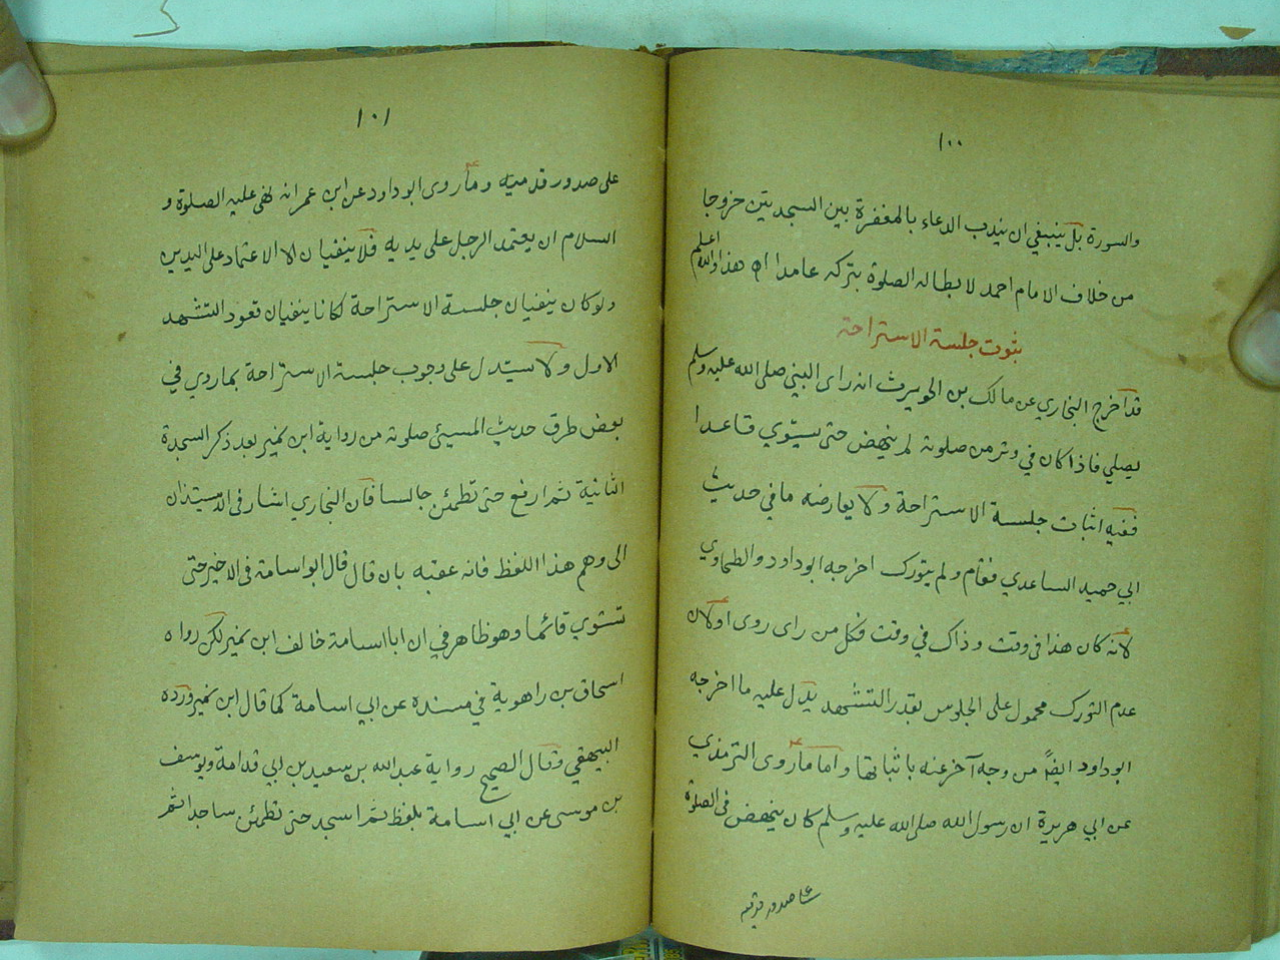 ١٠٠
والسورة بل ينبغي ان يندب الدعاء بالمغفرة بين السجدتين خروجا
من خلاف الامام احمد لابطاله الصلوة بتركه عامدا اه هذا والله اعلم
ثبوت جلسة الاستراحة
قد اخرج البخاري عن مالك بن الحويرث انه راى النبي صلى الله عليه وسلم
يصلي فاذا كان في وتر من صلوته لم ينهض حتى يستوي قاعدا
ففيه اثبات جلسة الاستراحة ولا يعارضه ما في حديث
ابي حميد الساعدي فقام ولم يتورك اخرجه ابوداود والطحاوي
لانه كان هذا في وقت وذاك في وقت فكل من راى روى او لان
عدم التورك محمول على الجلوس بقدر التشهد يدل عليه ما اخرجه
ابوداود ايضا من وجه آخر عنه باثباتها واما ما روى الترمذي
عن ابي هريرة ان رسول الله صلى الله عليه وسلم كان ينهض في الصلوة
على صدور قدميه
١٠١
على صدور قدميه وما روى ابوداود عن ابن عمر انه نهى عليه الصلوة و
السلام ان يعتمد الرجل على يديه فلا ينفيان الا الاعتماد على اليدين
ولو كان ينفيان جلسة الاستراحة لكانا ينفيان قعود التشهد
الاول ولا يستدل على وجوب جلسة الاستراحة بما روي في
بعض طرق حديث المسيئ صلوته من رواية ابن نمير بعد ذكر السجدة
الثانية ثم ارفع حتى تطمئن جالسا فان البخاري اشار في الاستيذان
الى وهم هذا اللفظ فانه عقبه بان قال قال ابواسامة في الاخير حتى
تستوي قائما وهو ظاهر في ان ابااسامة خالف ابن نمير لكن رواه
اسحاق بن راهوية في مسنده عن ابي اسامة كما قال ابن نمير ورده
البيهقي وقال الصحيح رواية عبدالله بن سعيد بن ابي قدامة ويوسف
بن موسى عن ابي اسامة بلفظ ثم اسجد حتى تطمئن ساجدا ثم